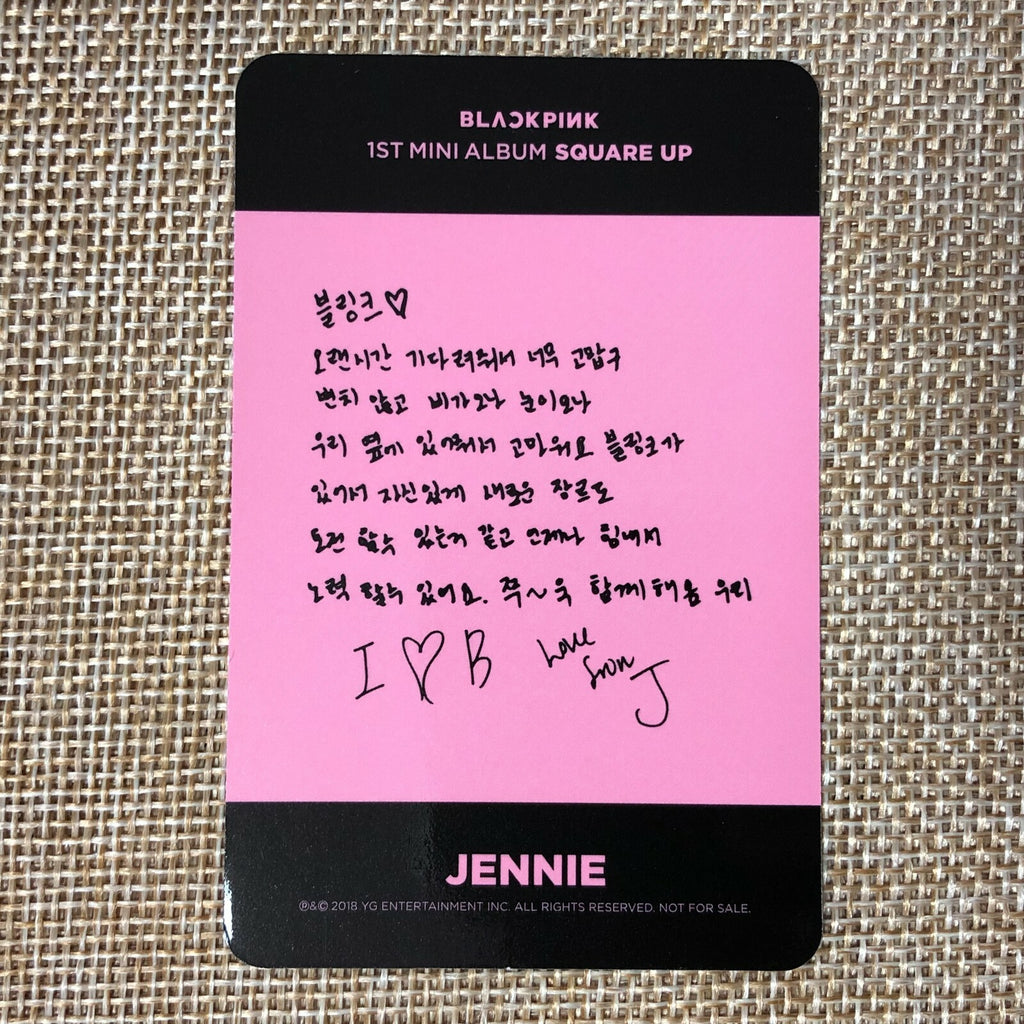 BLACKPINK
1ST MINI ALBUM SQUARE UP
블링크♡
오랜시간 기다려줘서 너무 고맙구
변치 않고 비가오나 눈이오나
우리 옆에 있어줘서 고마워요 블링크가
있어서 자신있게 새로운 장르도
도전 할수 있는거 같고 언제나 힘내서
노력 할수 있어요. 쭉~욱 함께해욤 우리
I ♡ B Love from J
JENNIE
℗&© 2018 YG ENTERTAINMENT INC. ALL RIGHTS RESERVED. NOT FOR SALE.